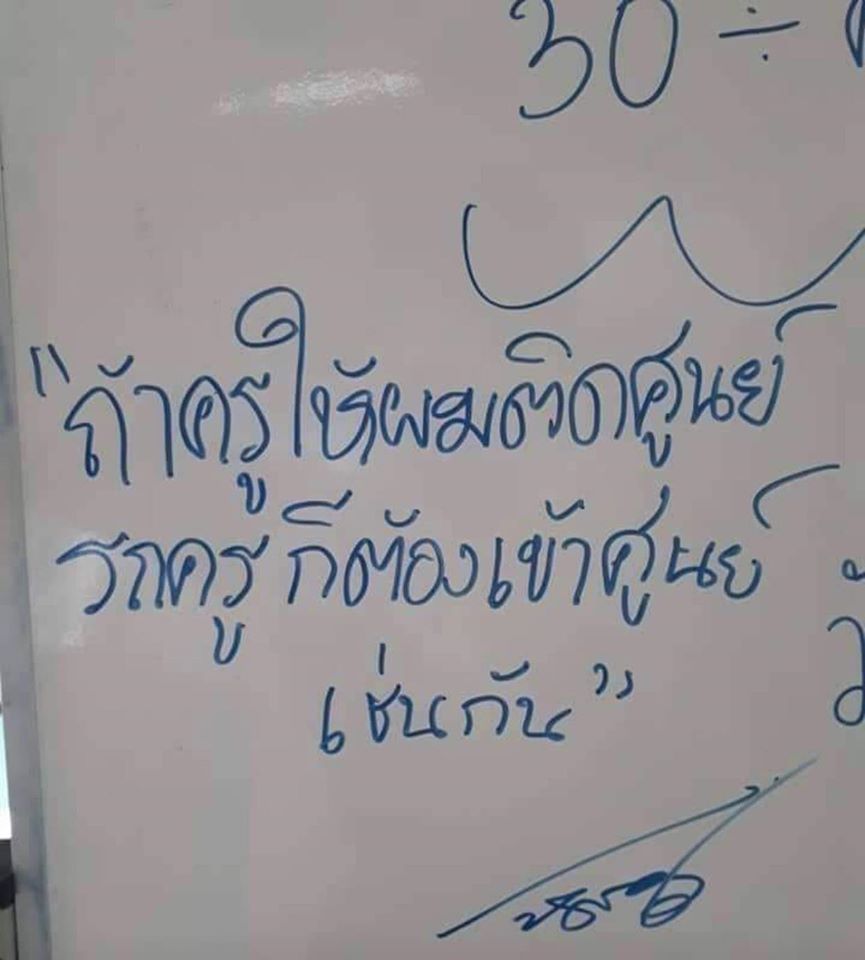 30 ÷
“ถ้าครูให้ผมติดศูนย์
รถครูก็ต้องเข้าศูนย์
เช่นกัน”